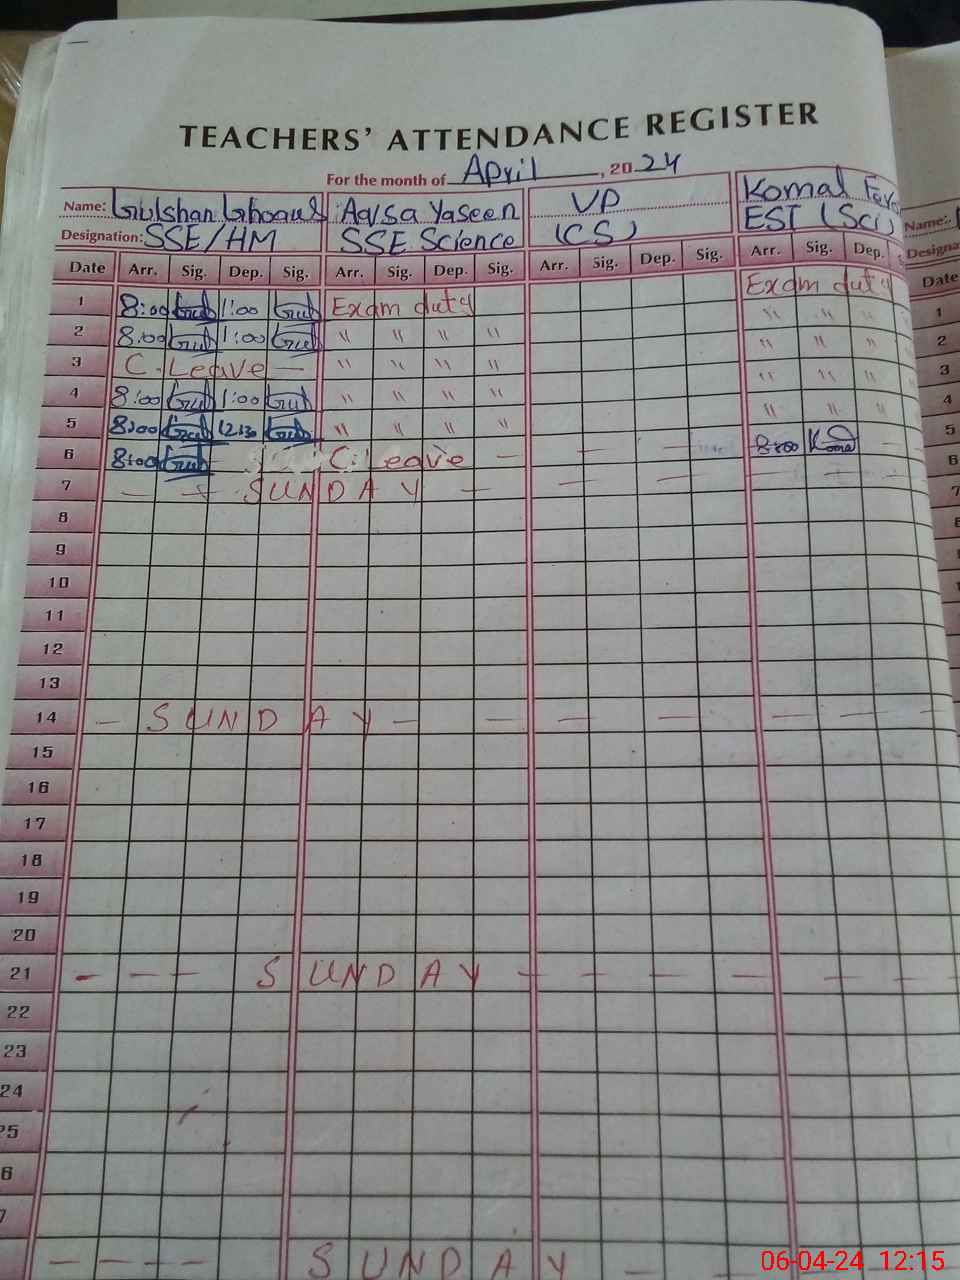 TEACHERS' ATTENDANCE REGISTER
For the month of April, 2024
Name: Gulshan Ghoaus Aqsa Yaseen VP Komal
Designation: SSE/HM SSE Science (CS) EST (Sci) Name:
Date Arr. Sig. Dep. Sig. Arr. Sig. Dep. Sig. Arr. Sig. Dep. Sig. Arr. Sig. Dep. Date
1 8:00 Gul 1:00 Gul Exam duty Exam duty 1
2 8:00 Gul 1:00 Gul " " " " " " " 2
3 C. Leave — " " " " " " " 3
4 8:00 Gul 1:00 Gul " " " " " " " 4
5 8:00 Gul 12:30 Gul " " " " " " " 5
6 8:00 Gul C. Leave — — — — 8:00 Komal 6
7 — — SUNDAY — — — 7
8
9
10
11
12
13
14 — SUNDAY — — — — — — —
15
16
17
18
19
20
21 - — — SUNDAY — — — — — —
22
23
24
25
6
7
— — — — SUNDAY —
06-04-24 12:15